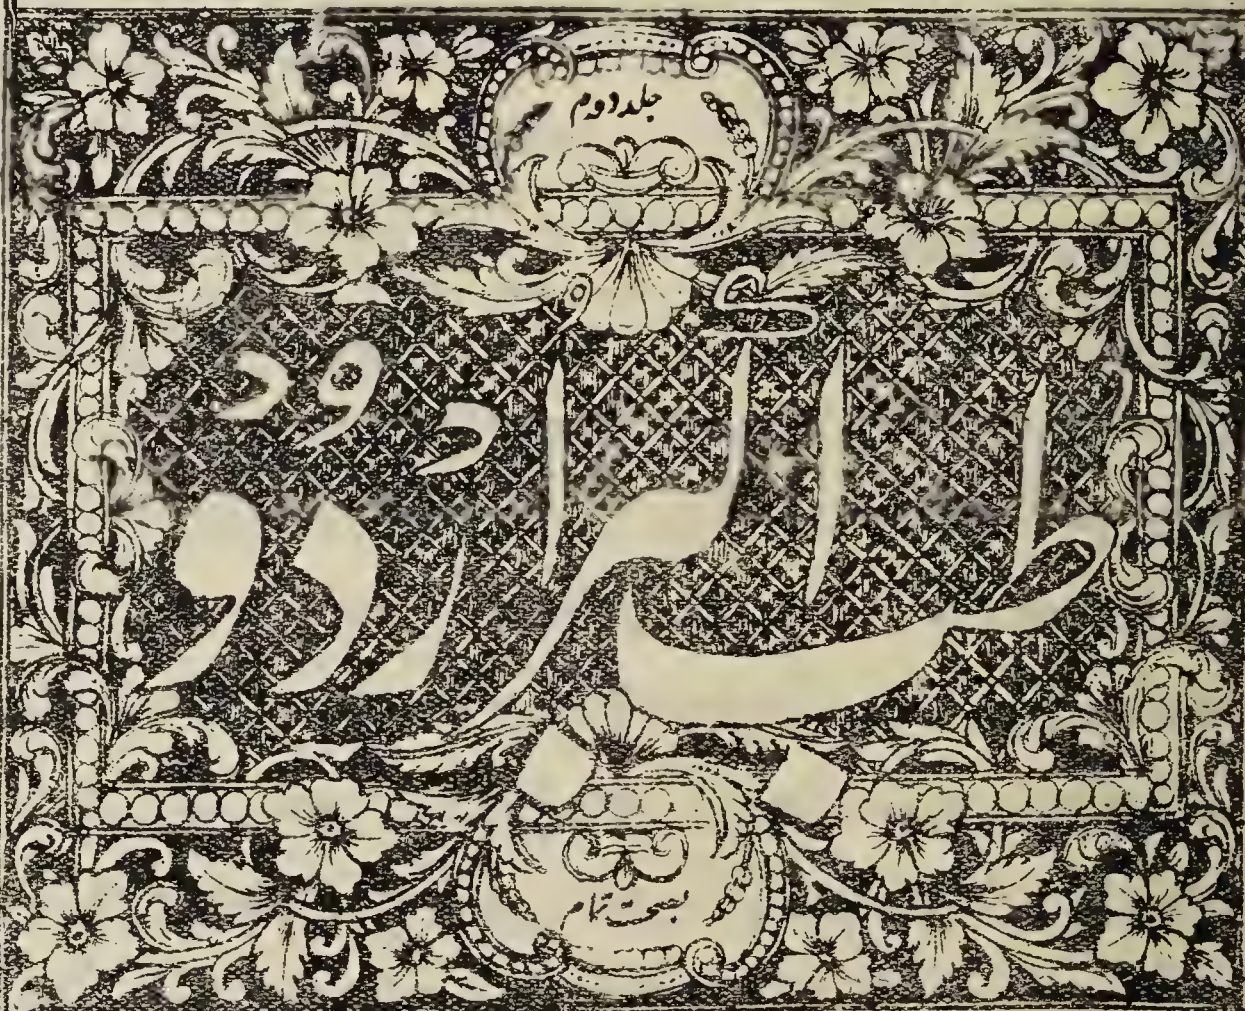 جلد دوم
طب اکبر اردو
بصحت تمام